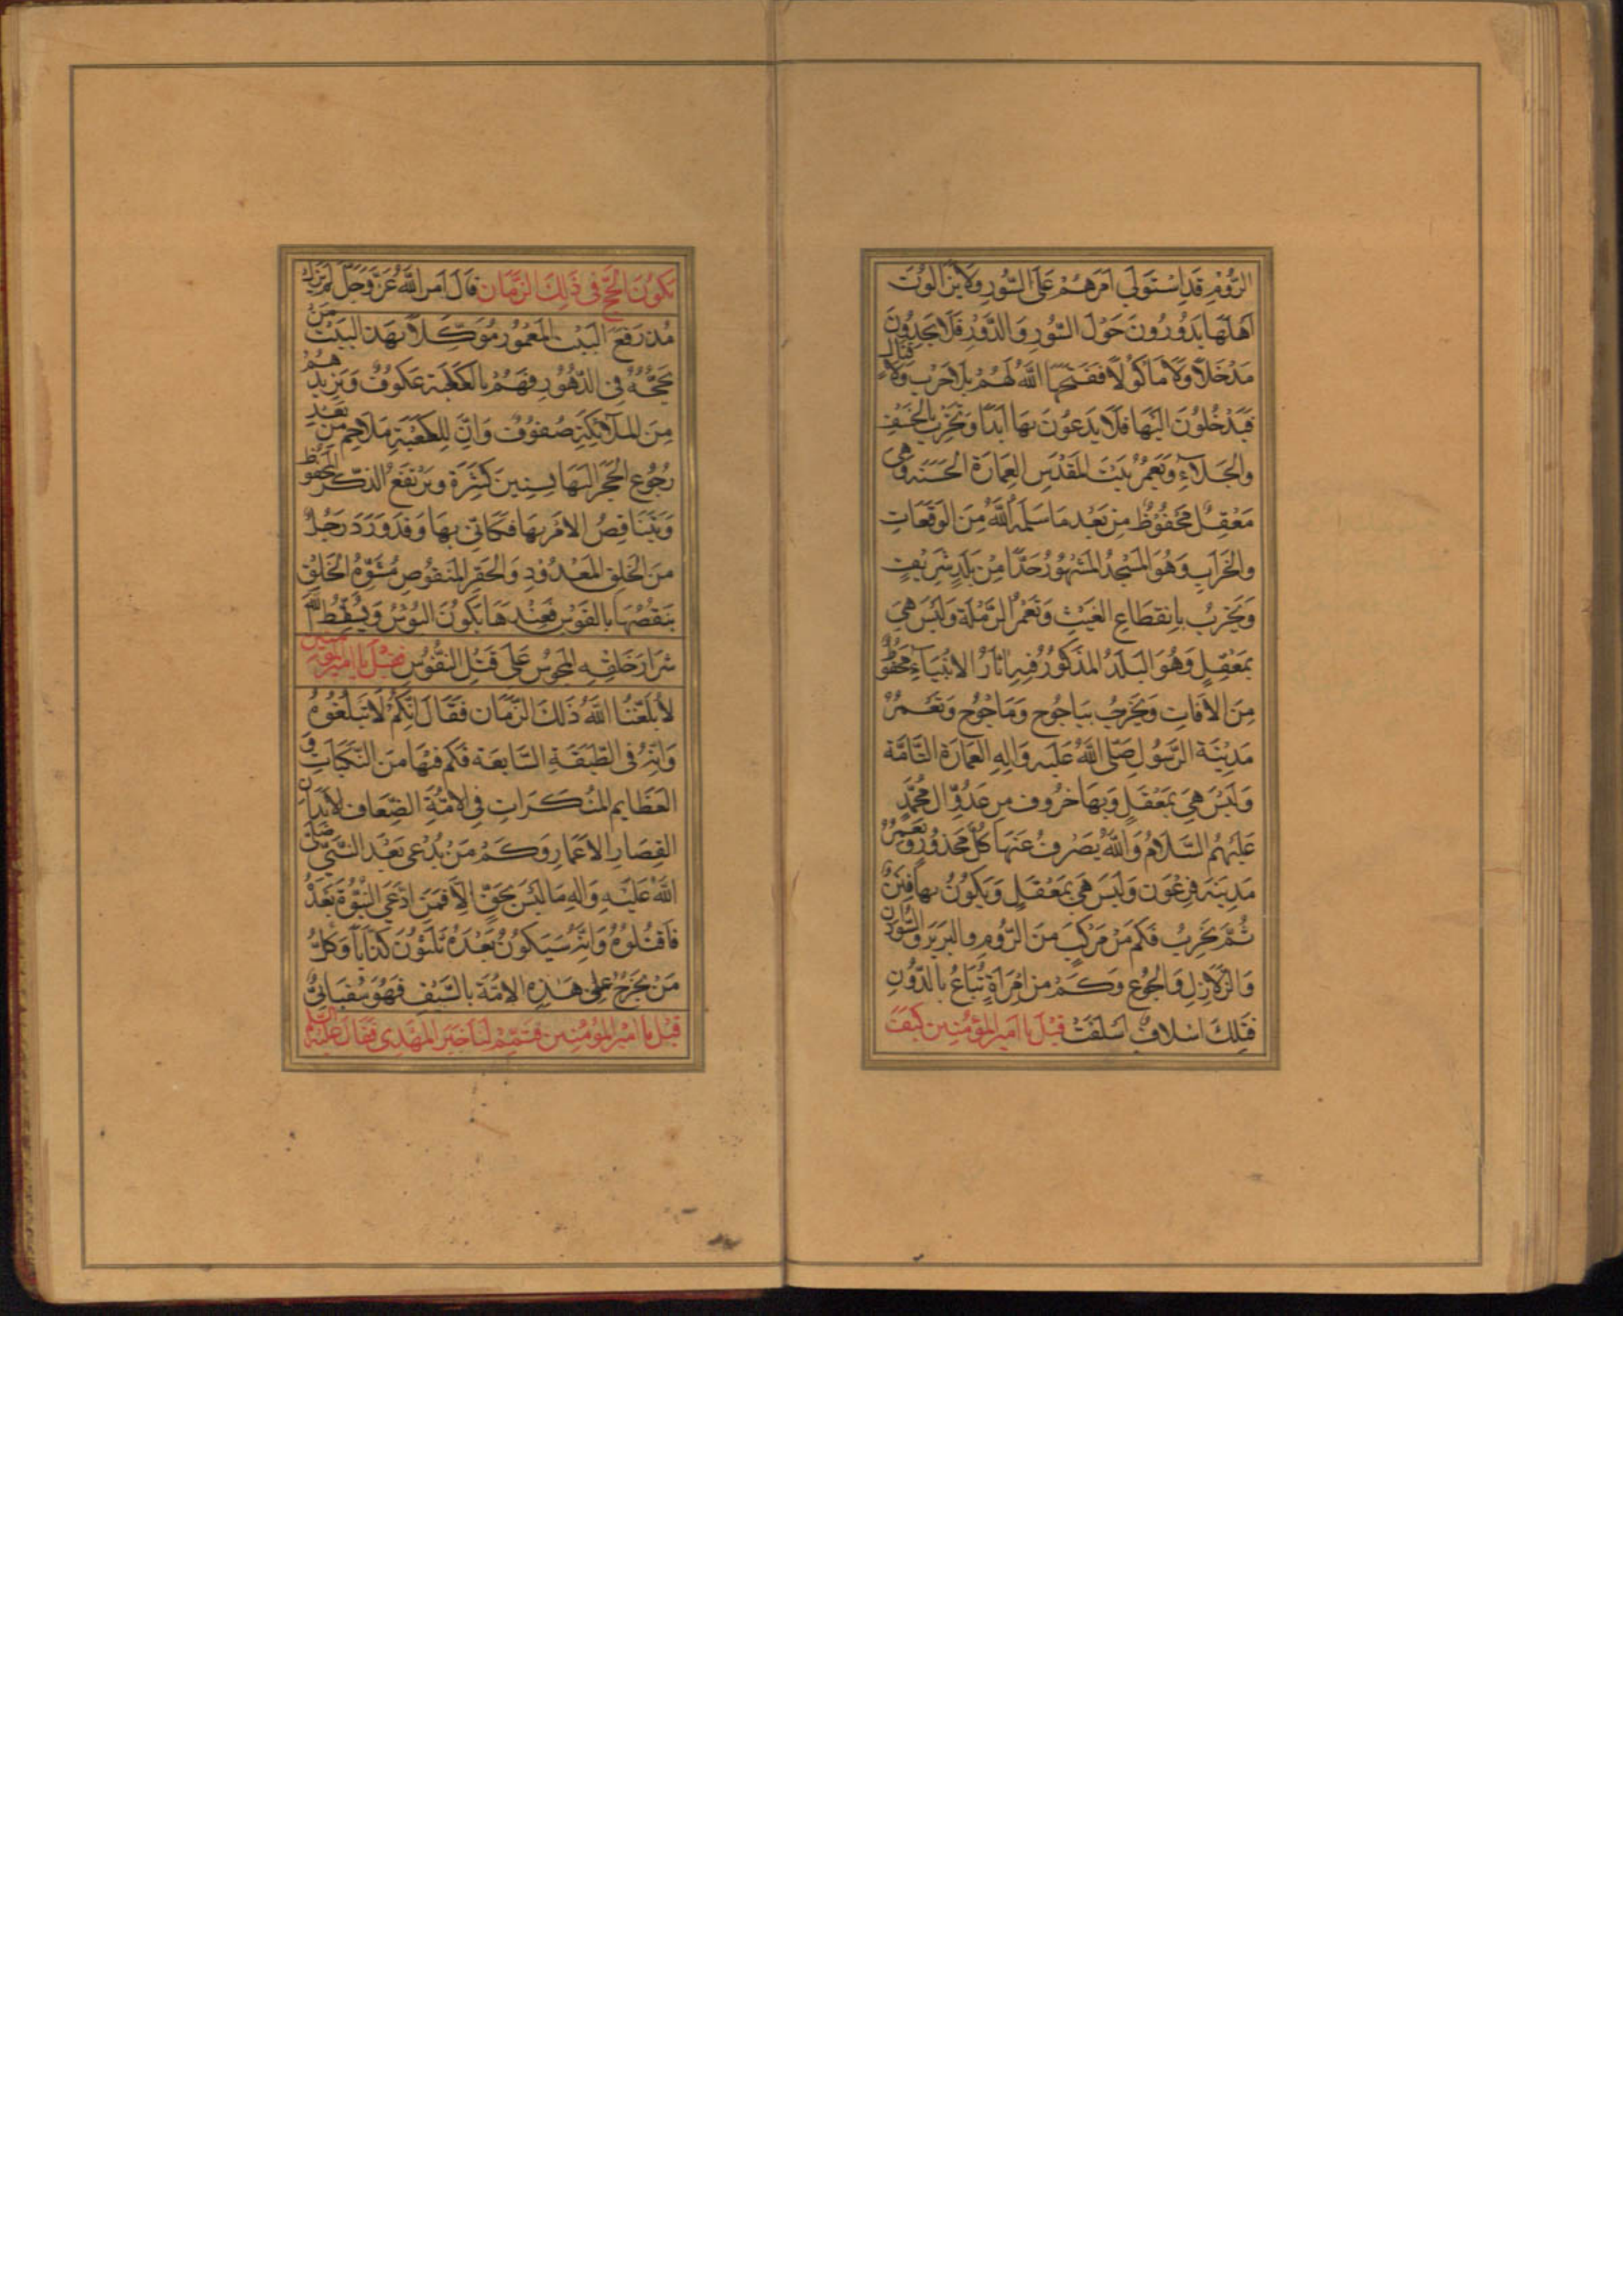 الرُّومِ قَدِ اسْتَوْلَى اَمْرَهُمْ عَلَى السُّورِ وَلَا يَزَالُونَ
اَهْلُهَا يَدُورُونَ حَوْلَ السُّورِ وَالدَّوْرِ فَلَا يَجِدُونَ
مَدْخَلًا وَلَا مَاكُولًا فَفَتَحَهَا اللّٰهُ لَهُمْ بِلَا حَرْبٍ وَلَا قِتَالٍ
فَيَدْخُلُونَ اِلَيْهَا فَلَا يَدَعُونَ بِهَا اَبَدًا وَتَخْرَبُ بِالْخَسْفِ
وَالْجَلَاءِ وَتَعْمُرُ بَيْتُ الْمَقْدِسِ الْعِمَارَةَ الْحَسَنَةَ وَهِيَ
مَعْقِلٌ مَحْفُوظٌ مِنْ بَعْدِ مَا سَلَّمَهُ اللّٰهُ مِنَ الْوَقَعَاتِ
وَالْخَرَابِ وَهُوَ الْمَسْجِدُ الْمَشْهُورُ حَدًّا مِنْ بَلَدٍ شَرِيفٍ
وَيَخْرَبُ بِانْقِطَاعِ الْغَيْثِ وَتَعْمُرُ الرَّمْلَةُ وَلَيْسَ هِيَ
بِمَعْقِلٍ وَهُوَ الْبَلَدُ الْمَذْكُورُ فِيهِ اٰثَارُ الْاَنْبِيَاءِ مَحْفُوظٌ
مِنَ الْاٰفَاتِ وَيَخْرَبُ بِيَاجُوجَ وَمَاجُوجَ وَتَعْمُرُ
مَدِينَةُ الرَّسُولِ صَلَّى اللّٰهُ عَلَيْهِ وَاٰلِهِ الْعِمَارَةَ التَّامَّةَ
وَلَيْسَ هِيَ بِمَعْقِلٍ وَبِهَا خُرُوفٌ مِنْ عَدُوِّ اٰلِ مُحَمَّدٍ
عَلَيْهِمُ السَّلَامُ وَاللّٰهُ يَصْرِفُ عَنْهَا كُلَّ مَحْذُورٍ وَتَعْمُرُ
مَدِينَةُ فِرْعَوْنَ وَلَيْسَ هِيَ بِمَعْقِلٍ وَيَكُونُ بِهَا فِتَنٌ
ثُمَّ يَخْرَبُ فَكَمْ مِنْ مَرْكَبٍ مِنَ الرُّومِ وَالْبَرْبَرِ وَالسُّودَانِ
وَالزَّلَازِلِ وَالْجُوعِ وَكَمْ مِنْ اِمْرَاَةٍ تُبَاعُ بِالدُّونِ
فَتِلْكَ اَسْلَافٌ اَسْلَفَتْ قِيلَ يَا اَمِيرَ الْمُؤْمِنِينَ كَيْفَ
يَكُونُ الْحَجُّ فِي ذٰلِكَ الزَّمَانِ قَالَ اَمْرُ اللّٰهِ عَزَّ وَجَلَّ لَمْ يَزَلْ
مُذْ رَفَعَ الْبَيْتَ الْمَعْمُورَ مُوَكَّلًا بِهَذَا الْبَيْتِ مَنْ
يَحُجُّهُ فِي الدُّهُورِ فَهُمْ بِالْكَعْبَةِ عُكُوفٌ وَيَزِيدُهُمْ
مِنَ الْمَلَائِكَةِ صُفُوفٌ وَاِنَّ لِلْكَعْبَةِ مَلَاحِمَ مِنْ بَعْدِ
رُجُوعِ الْحَجَرِ اِلَيْهَا بِسِنِينَ كَثِيرَةٍ وَيَرْتَفِعُ الذِّكْرُ الْمَحْفُوظُ
وَيَتَنَاقَصُ الْاَمْرُ بِهَا فَكَاَنِّي بِهَا وَقَدْ وَرَدَ رَجُلٌ
مِنَ الْخَلْقِ الْمَعْدُودِ وَالْحَقِيرِ الْمَنْقُوصِ مُشَوَّهُ الْخَلْقِ
يَنْقُضُهَا بِالْفَوْسِ فَعِنْدَهَا يَكُونُ الْبُوْسُ وَيُسَلِّطُ اللّٰهُ
شِرَارَ خَلْقِهِ الْمَجُوسَ عَلَى قَتْلِ النُّفُوسِ فَقِيلَ يَا اَمِيرَ الْمُؤْمِنِينَ
لَا بَلَّغَنَا اللّٰهُ ذٰلِكَ الزَّمَانَ فَقَالَ اِنَّكُمْ لَا تَبْلُغُوهُ
وَاِنَّهُ فِي الطَّبَقَةِ السَّابِعَةِ فَكَمْ فِيهَا مِنَ النَّكَبَاتِ وَ
الْعَظَايِمِ الْمُنْكَرَاتِ فِي الْاُمَّةِ الضِّعَافِ الْاَبْدَانِ
الْقِصَارِ الْاَعْمَارِ وَكَمْ مَنْ يُدْعَى بَعْدَ النَّبِيِّ صَلَّى
اللّٰهُ عَلَيْهِ وَاٰلِهِ مَا لَيْسَ بِحَقٍّ اِلَّا فَمَنِ ادَّعَى النُّبُوَّةَ بَعْدَهُ
فَاقْتُلُوهُ وَاِنَّهُ سَيَكُونُ بَعْدَهُ ثَلَثُونَ كَذَّابًا وَكُلُّ
مَنْ يَخْرُجُ عَلَى هٰذِهِ الْاُمَّةِ بِالسَّيْفِ فَهُوَ سُفْيَانِيٌّ
قِيلَ يَا اَمِيرَ الْمُؤْمِنِينَ فَتَمِّمْ لَنَا خَبَرَ الْمَهْدِي فَقَالَ عَلَيْهِ السَّلَمُ